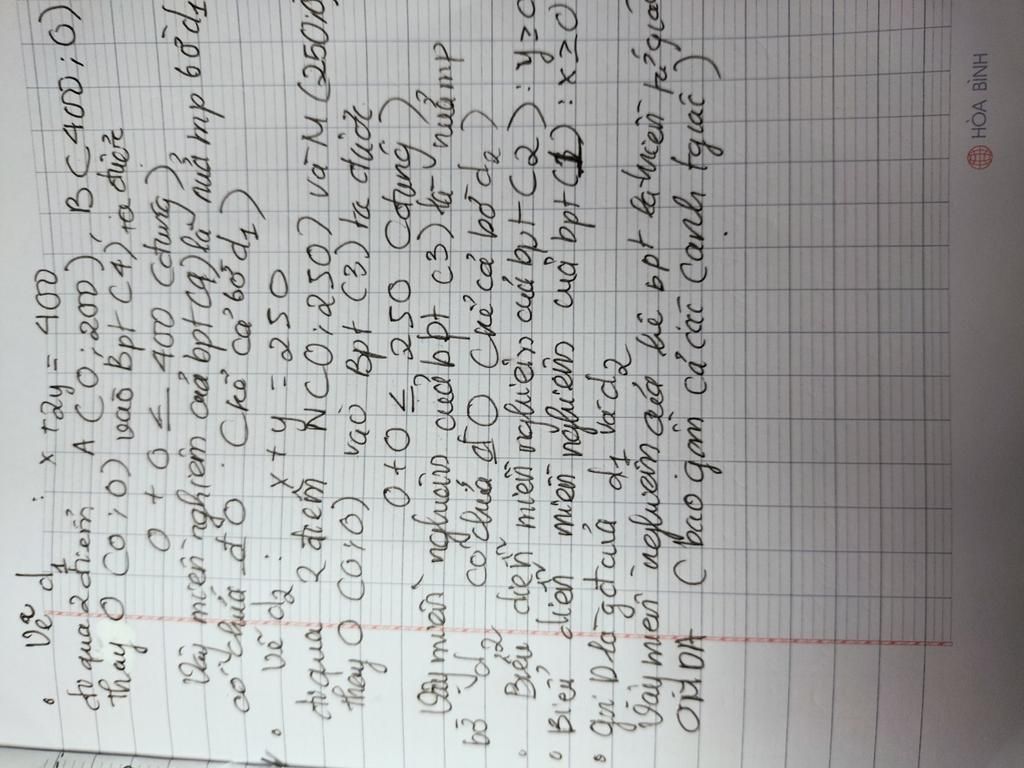 • Vẽ d1 : x + 2y = 400
đi qua 2 điểm A (0;200), B (400;0)
thay O (0;0) vào Bpt (4) ta được
0 + 0 ≤ 400 (đúng)
Vậy miền nghiệm của bpt (4) là nửa mp bờ d1
có chứa đ O. (kể cả bờ d1)
• Vẽ d2 : x + y = 250
đi qua 2 điểm N (0;250) và M (250;0
thay O (0;0) vào Bpt (3) ta được
0 + 0 ≤ 250 (đúng)
Vậy miền nghiệm của bpt (3) là nửa mp
bờ d2 có chứa đ O (kể cả bờ d2)
• Biểu diễn miền nghiệm của bpt (2) : y ≥ 0
• Biểu diễn miền nghiệm của bpt (1) : x ≥ 0
• gọi D là gđ của d1 và d2
Vậy miền nghiệm của hệ bpt là miền tứ giác
OMDA (bao gồm cả các cạnh tgiác)
HÒA BÌNH